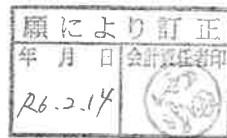 願により訂正
年 月 日 会計責任者印
R6.2.14